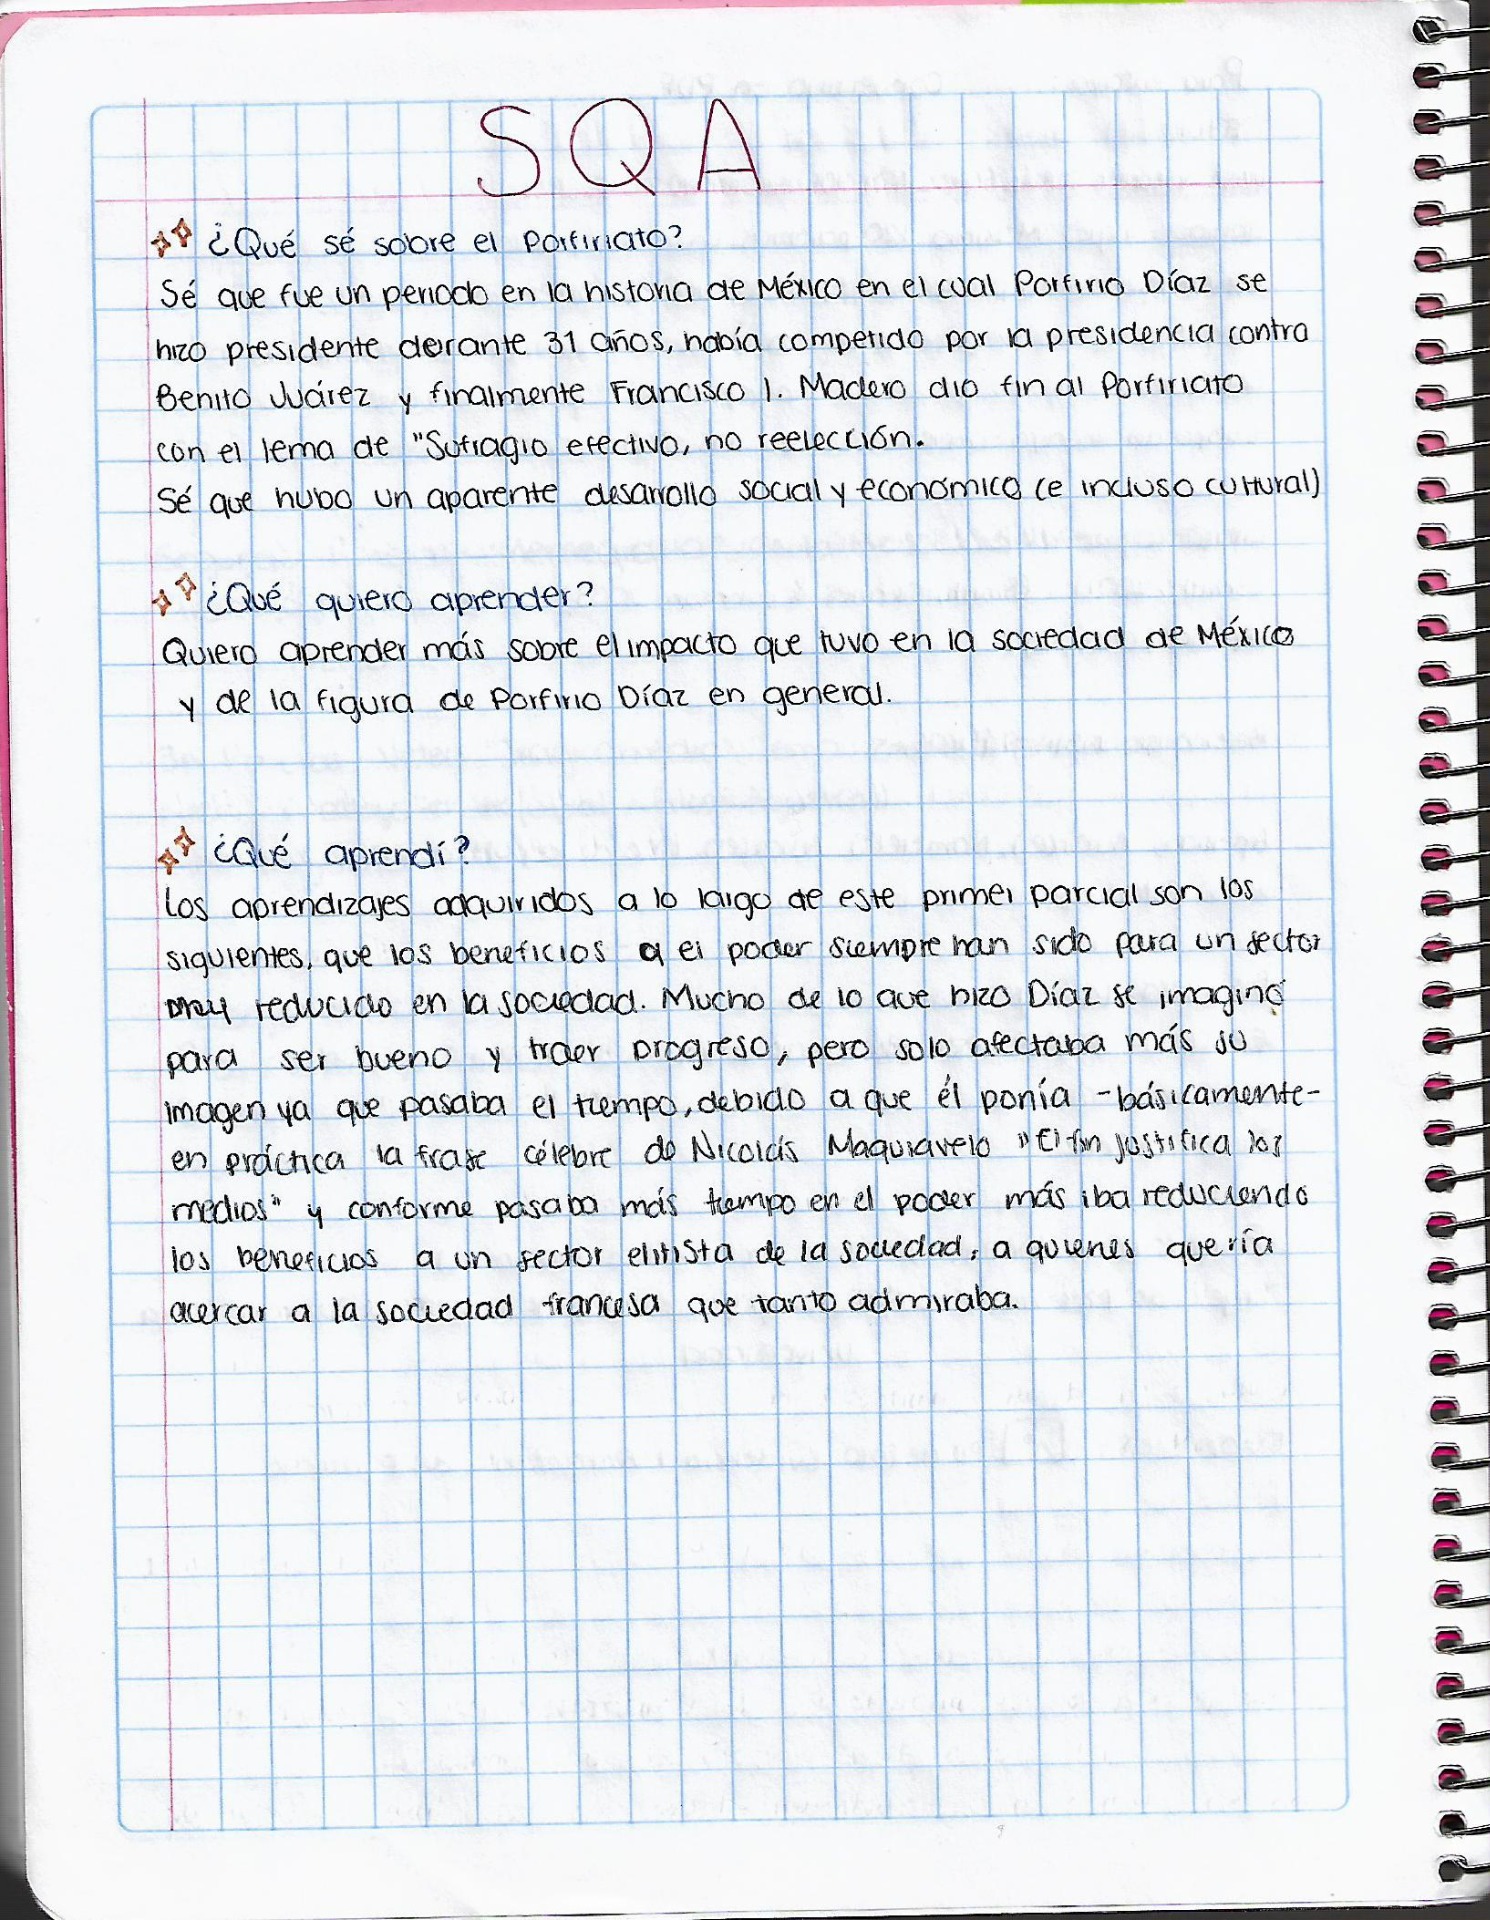 SQA
¿Qué sé sobre el Porfiriato?
Sé que fue un periodo en la historia de México en el cual Porfirio Díaz se
hizo presidente derante 31 años, había competido por la presidencia contra
Benito Juárez y finalmente Francisco I. Madero dio fin al Porfiriato
con el lema de "Sufragio efectivo, no reelección.
Sé que hubo un aparente desarrollo social y económico (e incluso cultural)
¿Qué quiero aprender?
Quiero aprender más sobre el impacto que tuvo en la sociedad de México
y de la figura de Porfirio Díaz en general.
¿Qué aprendí?
Los aprendizajes adquiridos a lo largo de este primer parcial son los
siguientes, que los beneficios a el poder siempre han sido para un sector
muy reducido en la sociedad. Mucho de lo que hizo Díaz se imaginó
para ser bueno y traer progreso, pero solo afectaba más su
imagen ya que pasaba el tiempo, debido a que él ponía -básicamente-
en práctica la frase célebre de Nicolás Maquiavelo "El fin justifica los
medios" y conforme pasaba más tiempo en el poder más iba reduciendo
los beneficios a un sector elitista de la sociedad, a quienes quería
acercar a la sociedad francesa que tanto admiraba.